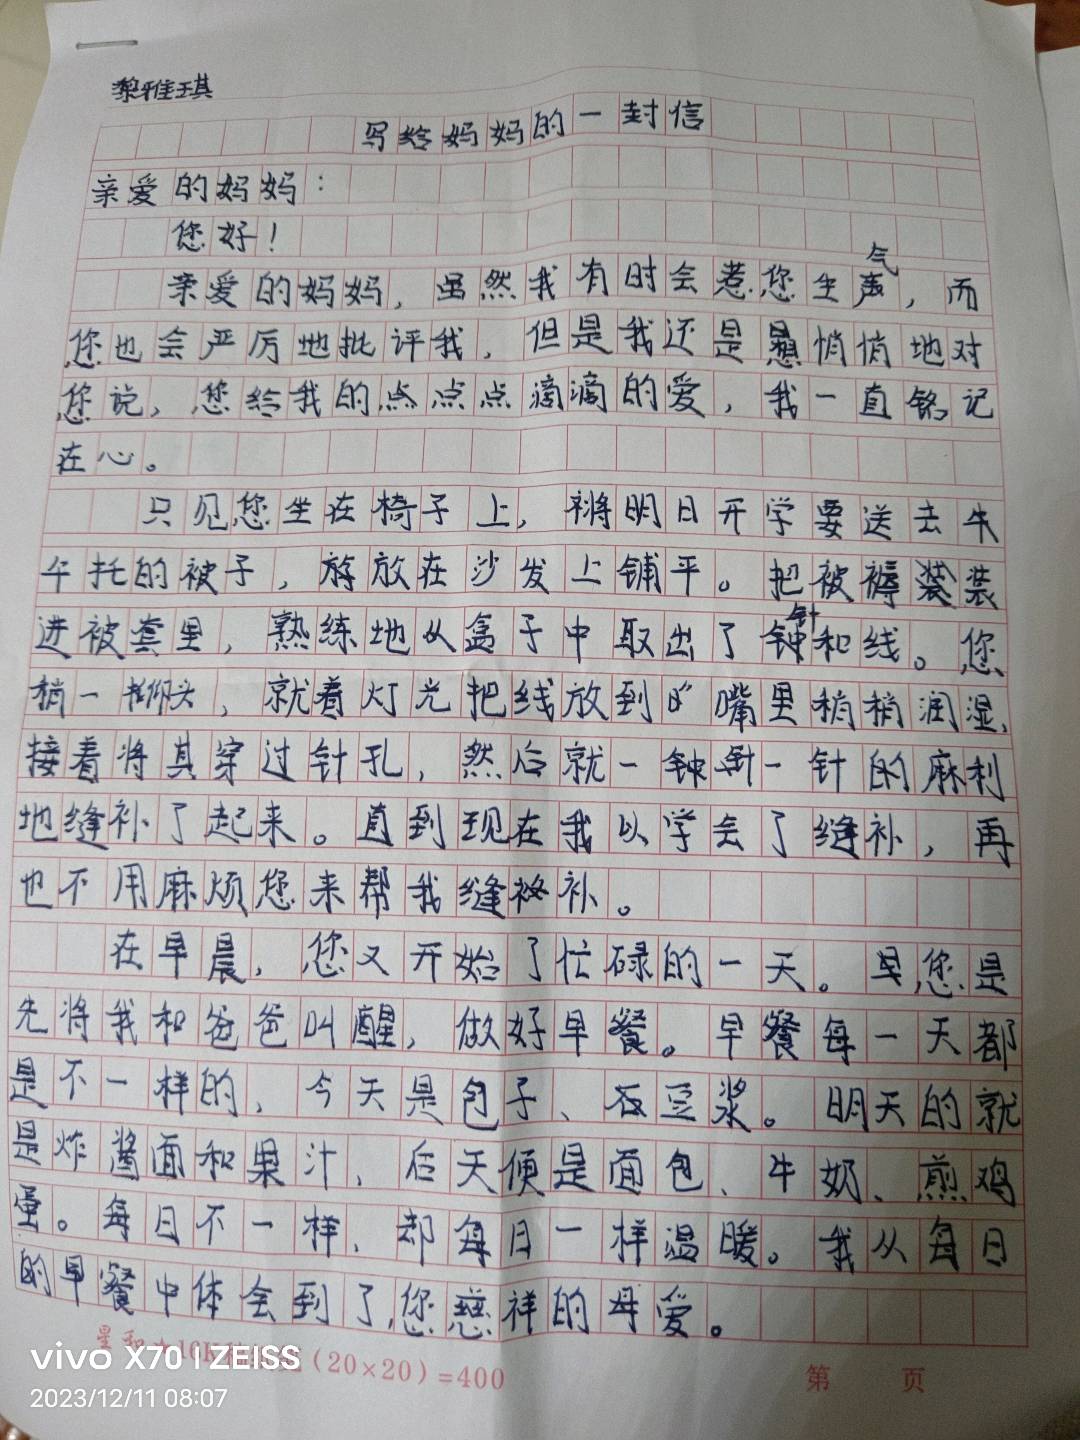 黎雅琪
写给妈妈的一封信
亲爱的妈妈：
您好！
气
亲爱的妈妈，虽然我有时会惹您生声，而
您也会严厉地批评我，但是我还是想悄悄地对
您说，您给我的点点点滴滴的爱，我一直铭记
在心。
只见您坐在椅子上，将明日开学要送去牛
午托的被子，放放在沙发上铺平。把被褥装装
针
进被套里，熟练地从盒子中取出了钟和线。您
稍一抑头，就着灯光把线放到嘴里稍稍润湿，
接着将其穿过针孔，然后就一钟针一针的麻利
地缝补了起来。直到现在我以学会了缝补，再
也不用麻烦您来帮我缝补。
在早晨，您又开始了忙碌的一天。早您是
先将我和爸爸叫醒，做好早餐。早餐每一天都
是不一样的，今天是包子、豆浆。明天的就
是炸酱面和果汁，后天便是面包、牛奶、煎鸡
蛋。每日不一样，却每日一样温暖。我从每日
的早餐中体会到了您慈祥的母爱。
(20×20)=400
第 页
vivo X70 | ZEISS
2023/12/11 08:07